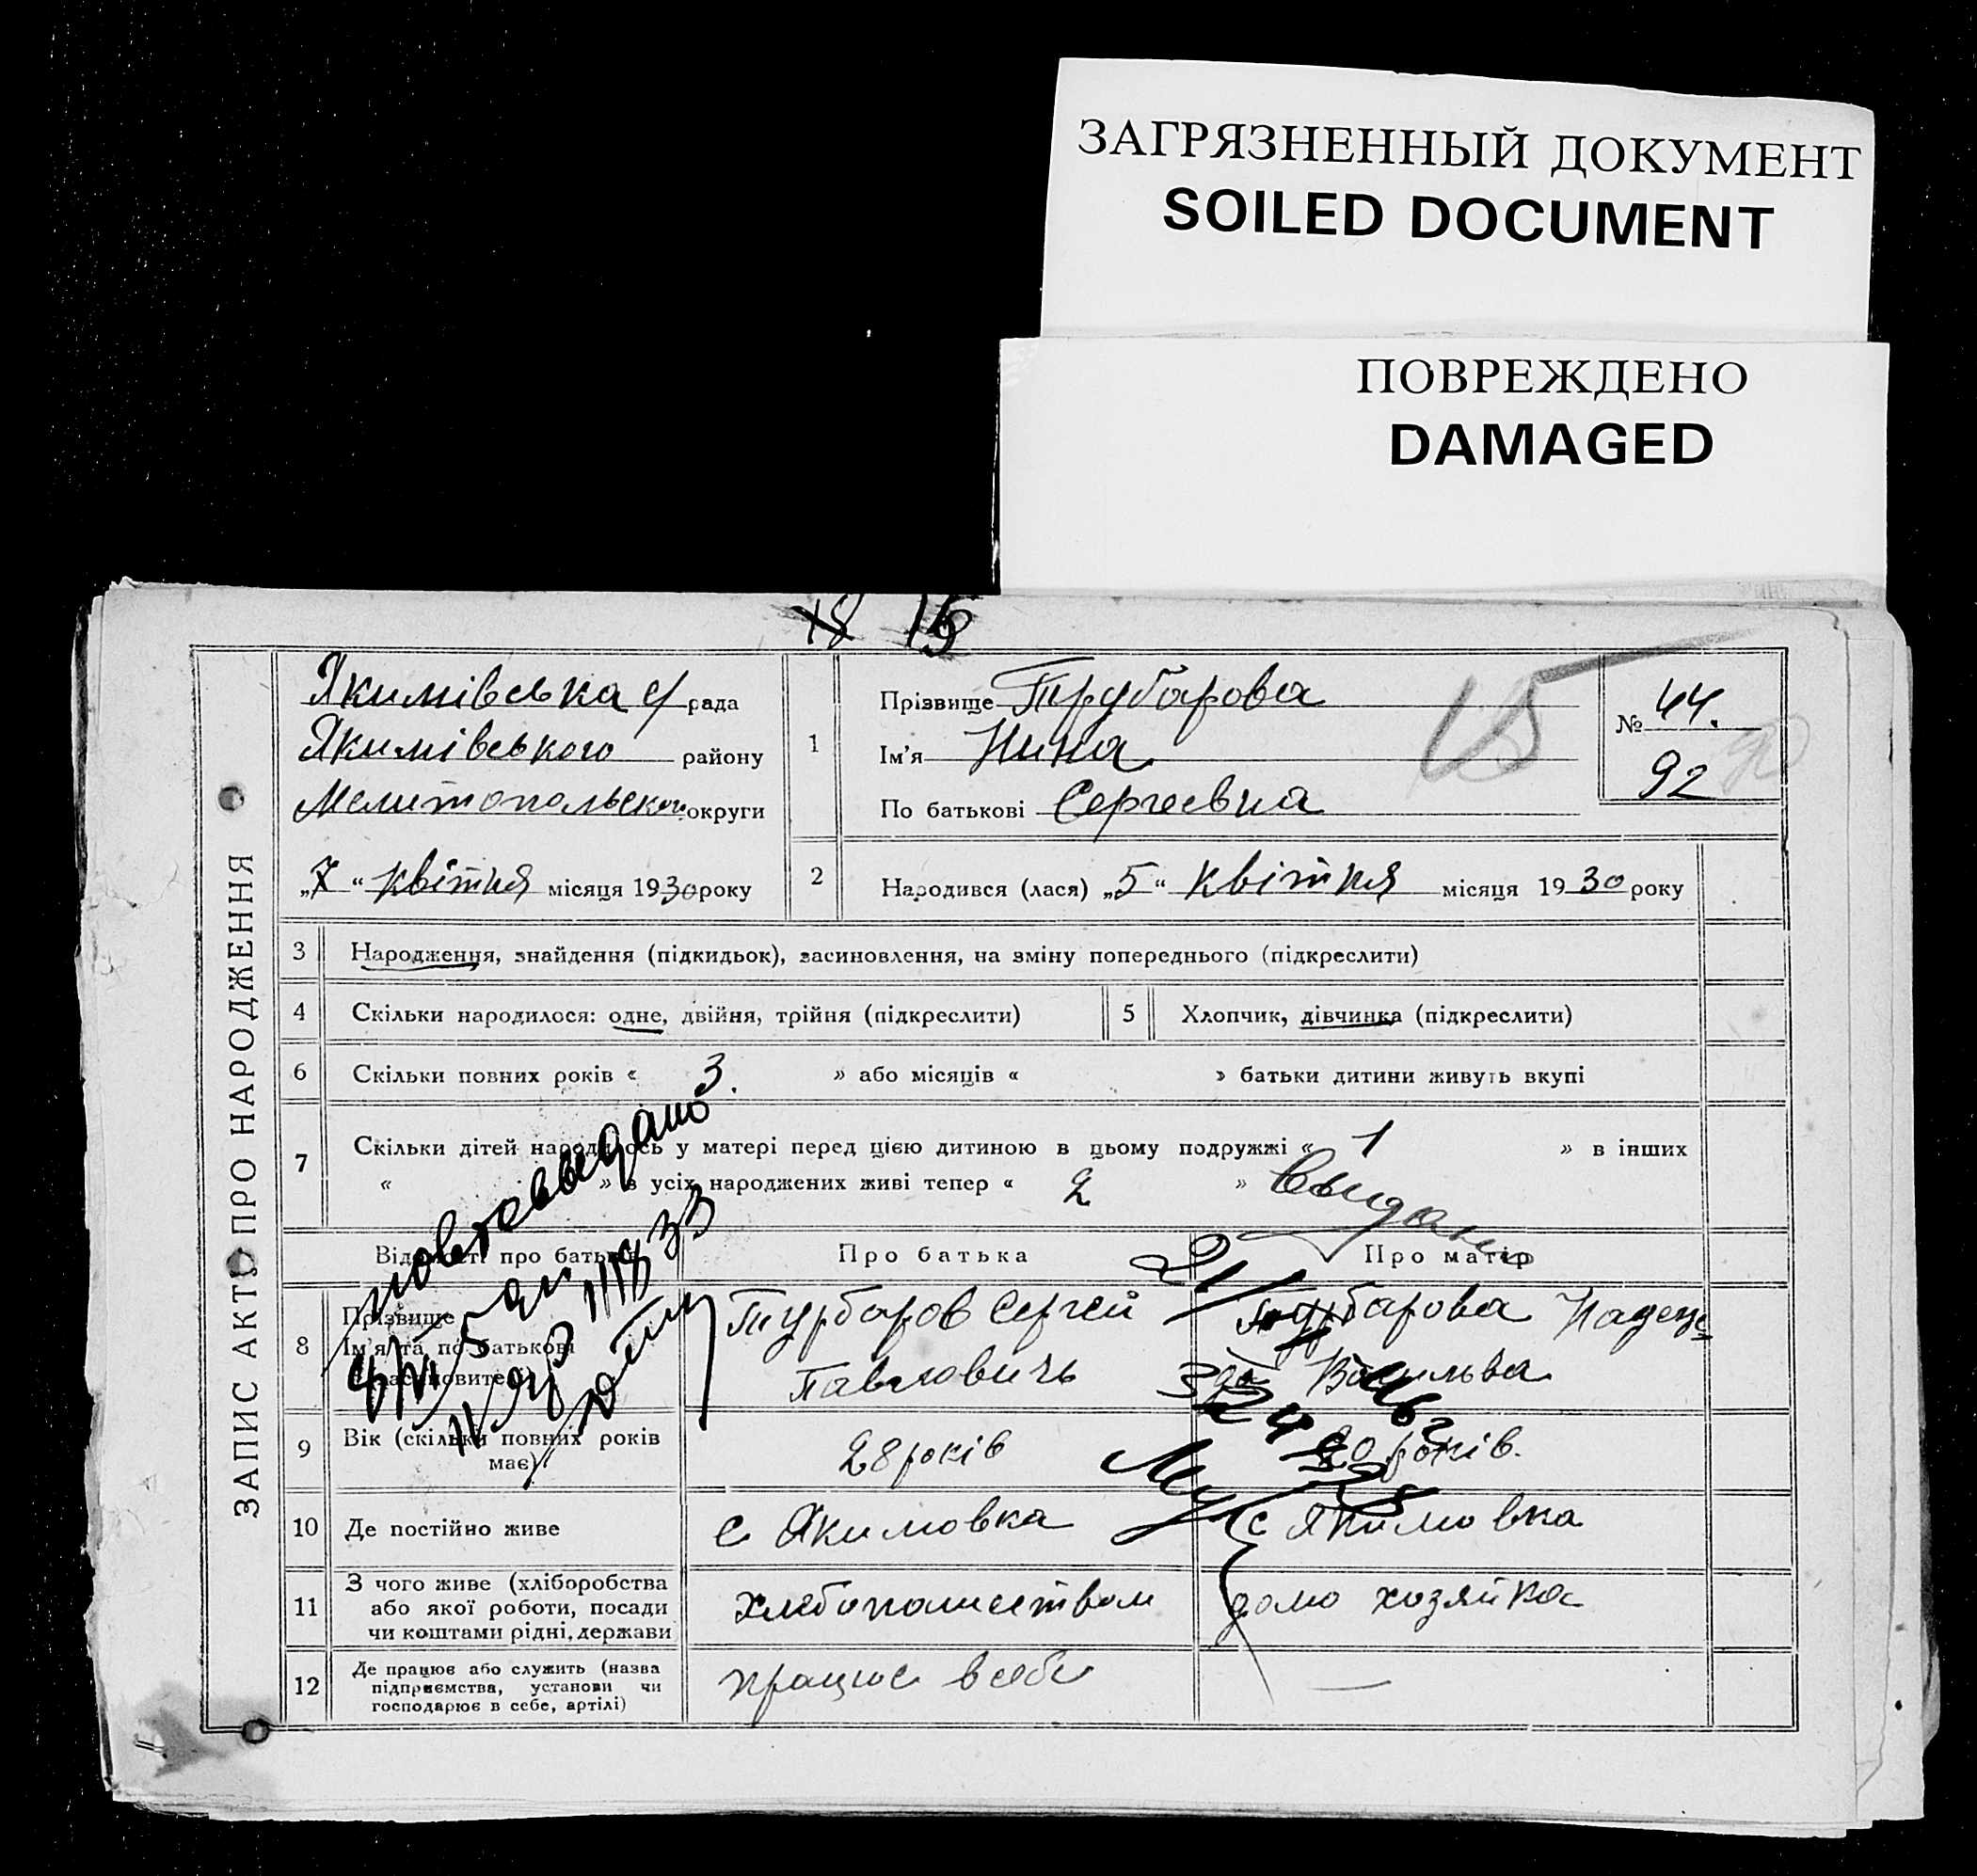 ЗАГРЯЗНЕННЫЙ ДОКУМЕНТ
SOILED DOCUMENT
ПОВРЕЖДЕНО
DAMAGED
18 15
ЗАПИС АКТУ ПРО НАРОДЖЕННЯ
Якимівська с/ рада
Якимівського району
Мелитопольської округи
„7“ квітня місяця 1930 року
1
Прізвище Трубарова
Ім'я Нина
По батькові Сергеевна
15
№ 44.
92
2
Народився (лася) „5“ квітня місяця 1930 року
3 Народження, знайдення (підкидьок), засиновлення, на зміну попереднього (підкреслити)
4 Скільки народилося: одне, двійня, трійня (підкреслити)
5 Хлопчик, дівчинка (підкреслити)
6 Скільки повних років « 3. » або місяців « » батьки дитини живуть вкупі
7 Скільки дітей народилось у матері перед цією дитиною в цьому подружжі « 1 » в інших
« » в усіх народжених живі тепер « 2 »
Відомості про батьків Про батька Про матір
8 Прізвище
Ім'я та по батькові
Турбаров Сергей
Павлович
Турбарова Надеж
да
9 Вік (скільки повних років має)
28 років
років.
10 Де постійно живе
с Якимовка
с Якимовка
11 З чого живе (хліборобства
або якої роботи, посади
чи коштами рідні, держави
хлебопашеством
домо хозяйка
12 Де працює або служить (назва
підприємства, установи чи
господарює в себе, артілі)
працює в себе
—